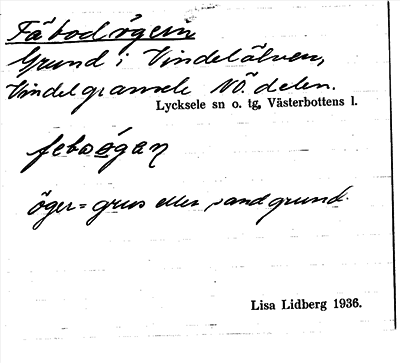 Fäbodögern
Grund i Vindelälven,
Vindelgransele NÖ. delen.
Lycksele sn o. tg, Västerbottens l.
öger = grus eller sandgrund.
Lisa Lidberg 1936.